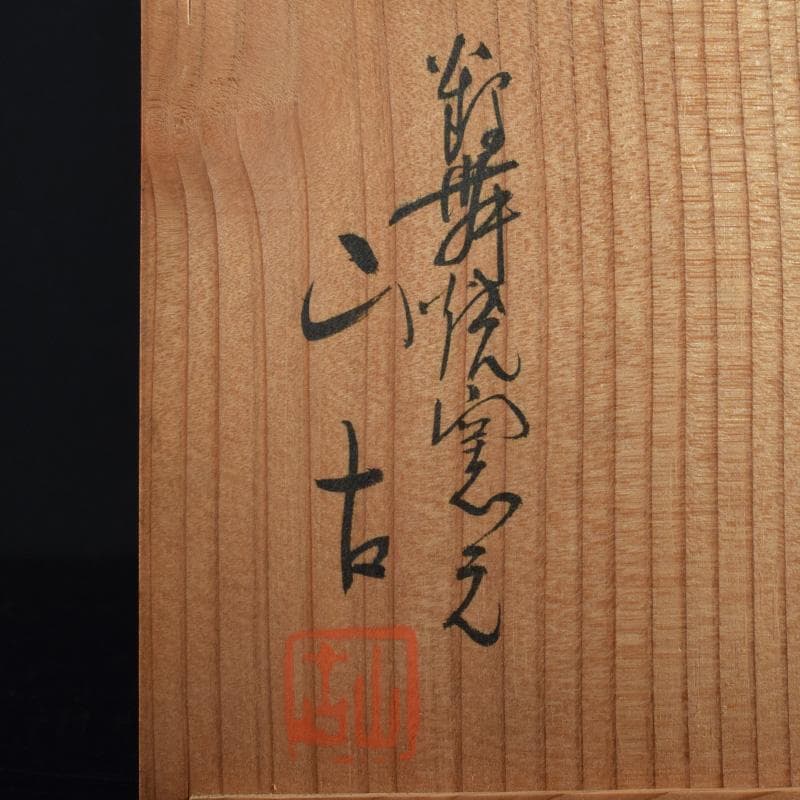 鶴舞焼窯元
山古
山古